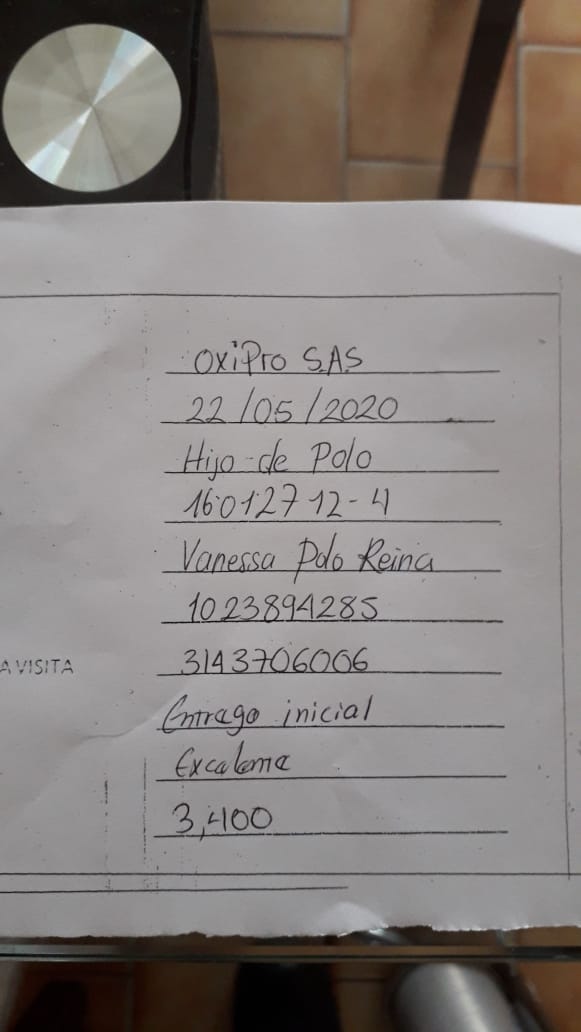 OxiPro S.A.S
22/05/2020
Hijo de Polo
16012712-4
Vanessa Polo Reina
1023894285
A VISITA
3143706006
Entrago inicial
3,400